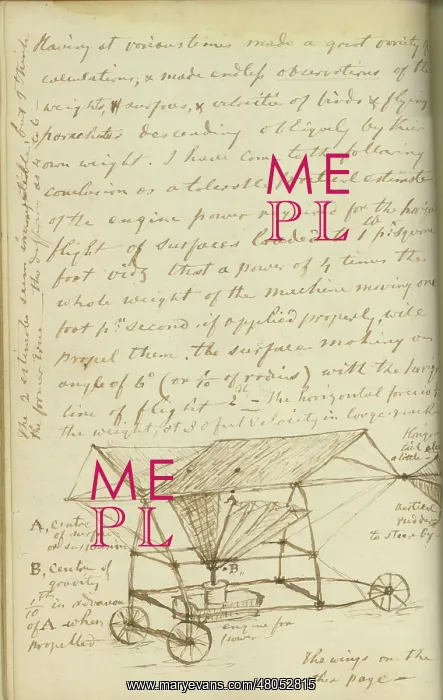 Having at various times made a great variety of
calculations, & made endless observations of the
weights, & surfaces, & velocities of birds & flying
parachutes descending obliquely by their
own weight. I have come to the following
conclusion as a tolerable practical estimate
of the engine power required for the horizontal
flight of surfaces loaded to 1 lb pr square
foot vidz that a power of 4 times the
whole weight of the machine moving one
foot pr second, if applied properly, will
propel them, the surface making an
angle of 6° (or 1/10 of radius) with the
line of flight 2d - the horizontal force
the weight, at 30 feet velocity in large
The 2 estimates seem incompatible, but I think
the former true - the difference as 4 to
Horizontal
tail
a little
vertical
rudder
to steer by
A, centre
of surface
or suspension
B, centre of
gravity
1/10th in advance
of A when
propelled
A
B,
engine for
power
The wings on the
other page -
ME
PL
ME
PL
www.maryevans.com/48052815